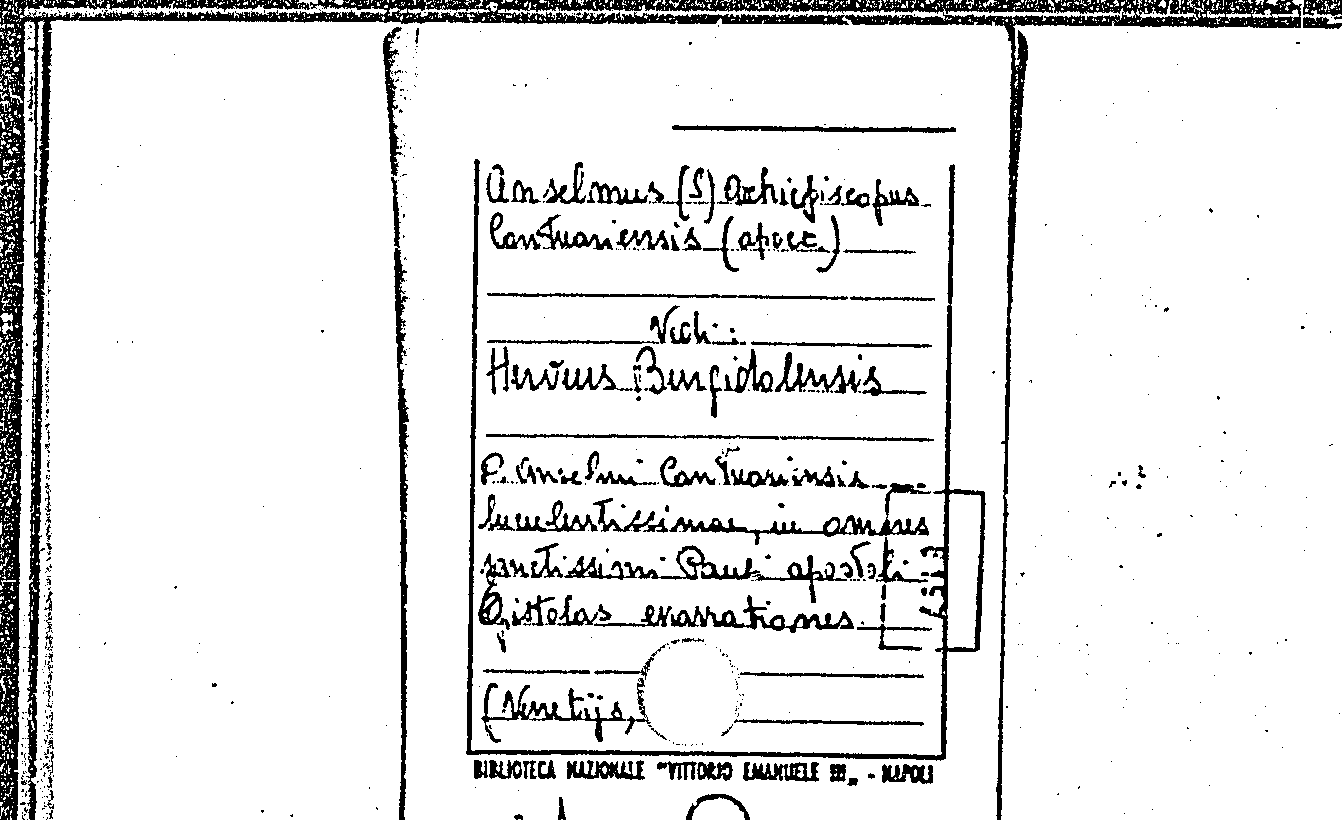 Anselmus (S) Archiepiscopus
Cantuariensis (apocr.)
Vedi:
Herveus Burgidolensis
D. Anselmi Cantuariensis
luculentissimae, in omnes
sanctissimi Pauli apostoli
Epistolas enarrationes.
(Venetijs,
BIBLIOTECA NAZIONALE "VITTORIO EMANUELE III„ - NAPOLI